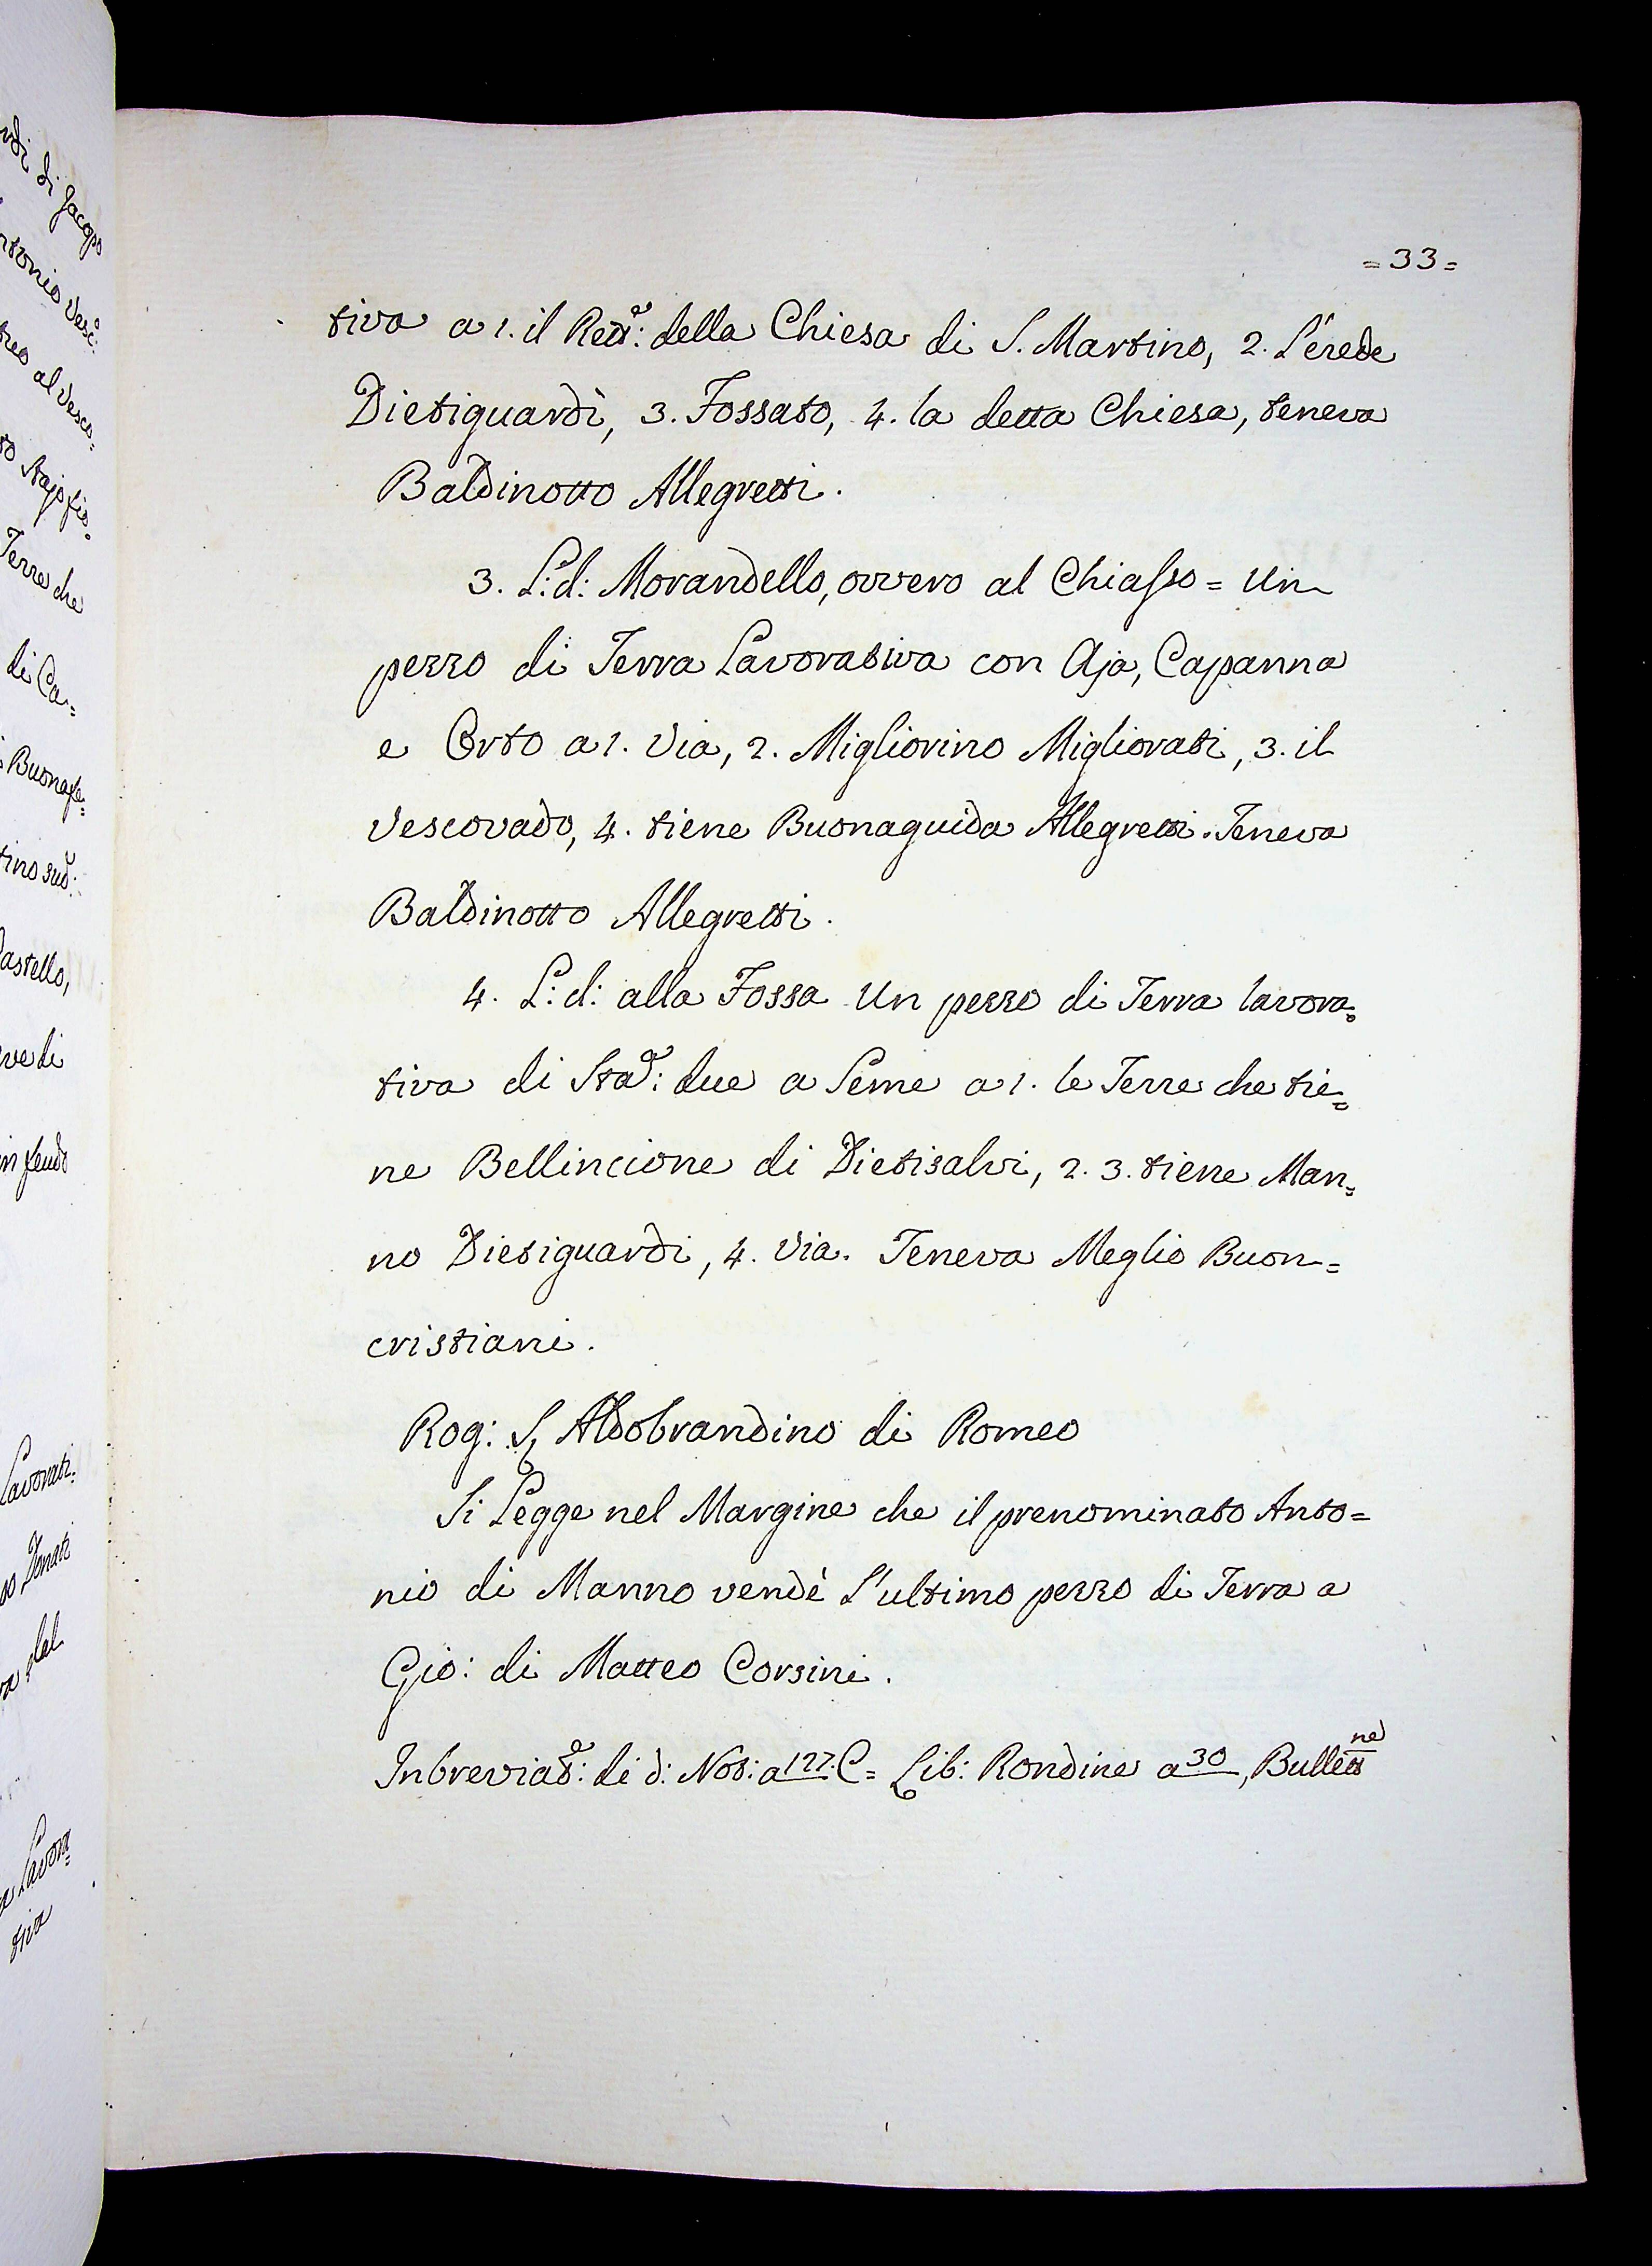 =33=
tiva a 1. il Rett:e della Chiesa di S. Martino, 2. L'erede
Dietiguardi, 3. Fossato, 4. la detta Chiesa, teneva
Baldinotto Allegretti.
3. L: d: Morandello, ovvero al Chiasso = Un
pezzo di Terra Lavorativa con Aja, Capanna
e Orto a 1. Via, 2. Migliorino Migliorati, 3. il
Vescovado, 4. tiene Buonaguida Allegretti. Teneva
Baldinotto Allegretti.
4. L: d: alla Fossa Un pezzo di Terra lavora=
tiva di Sta:a due a Seme a 1. le Terre che tie=
ne Bellincione di Dietisalvi, 2. 3. tiene Man=
no Dietiguardi, 4. Via. Teneva Meglio Buon=
cristiani.
Rog: S. Aldobrandino di Romeo
Si Legge nel Margine che il prenominato Anto=
nio di Manno vendè L'ultimo pezzo di Terra a
Gio: di Matteo Corsini.
Inbreviat:e di d: Not: a 127. C= Lib: Rondine a 30, Bullettne
di Jacopo
al Vesco=
Terre che
di Ca=
Buonafe=
tino sud:o
astello,
ve di
in feudo
Lavorati=
Donati
del
Lavora=
tiva